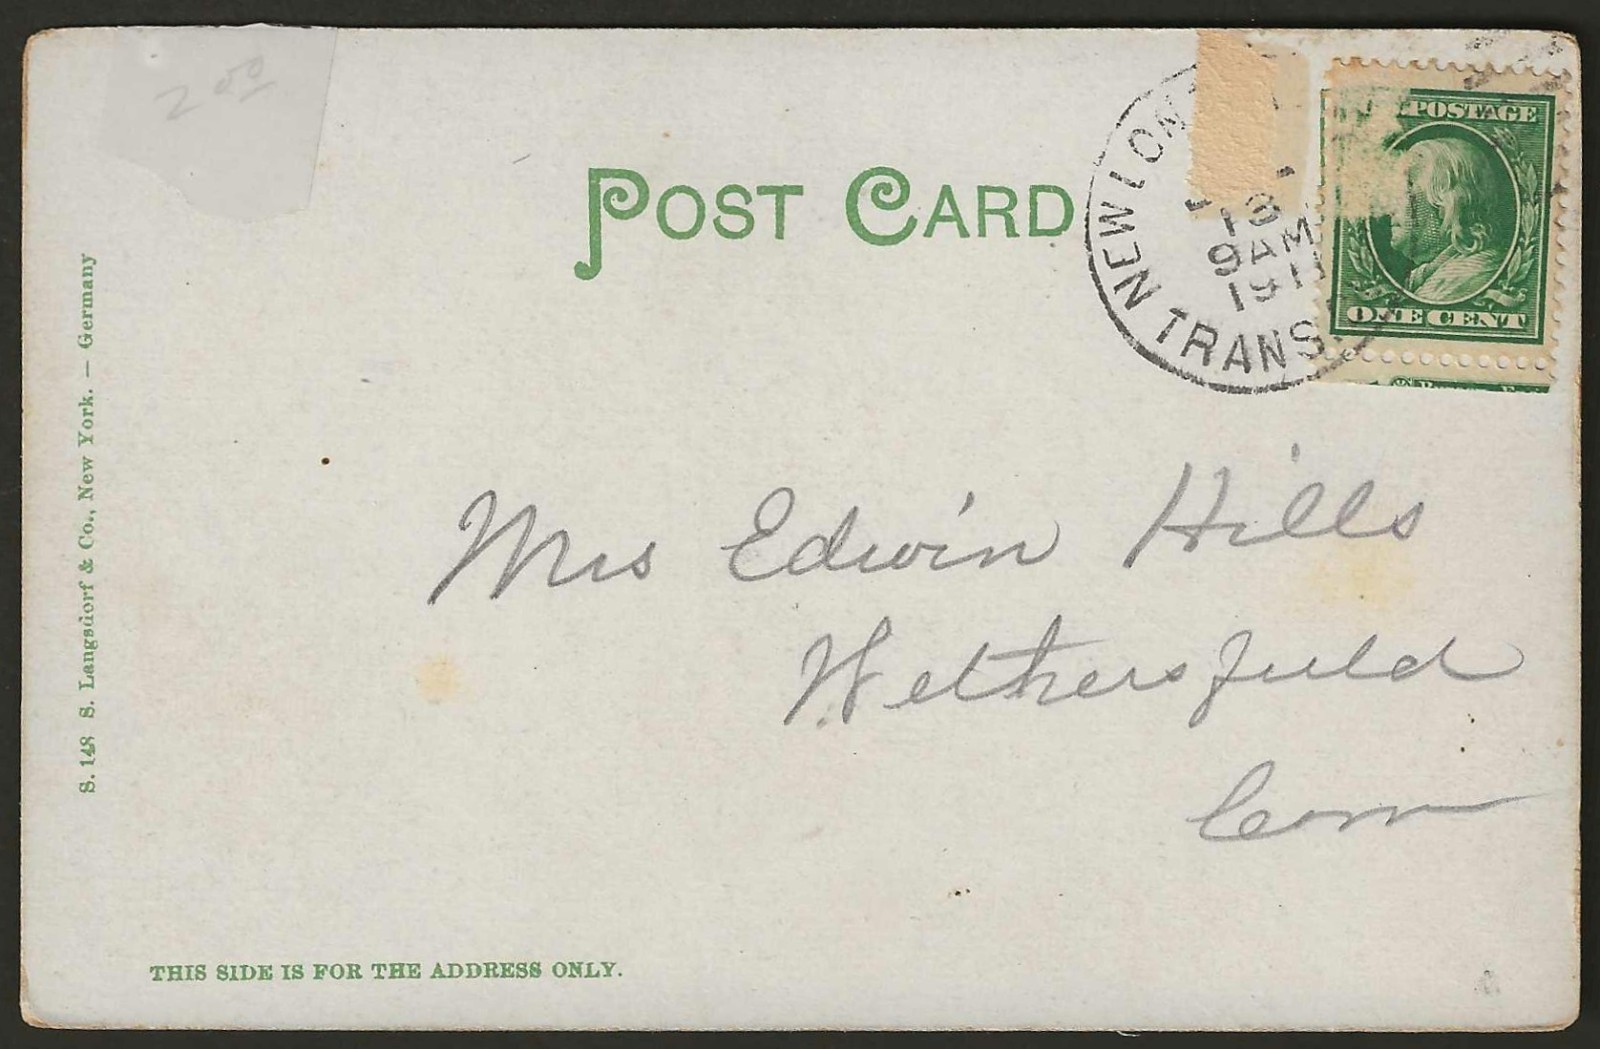 2 00
POST CARD
NEW LON
13
9 AM
1911
TRANS.
POSTAGE
ONE CENT
Mrs Edwin Hills
Wethersfield
Conn
S. 148 S. Langsdorf & Co., New York. — Germany
THIS SIDE IS FOR THE ADDRESS ONLY.